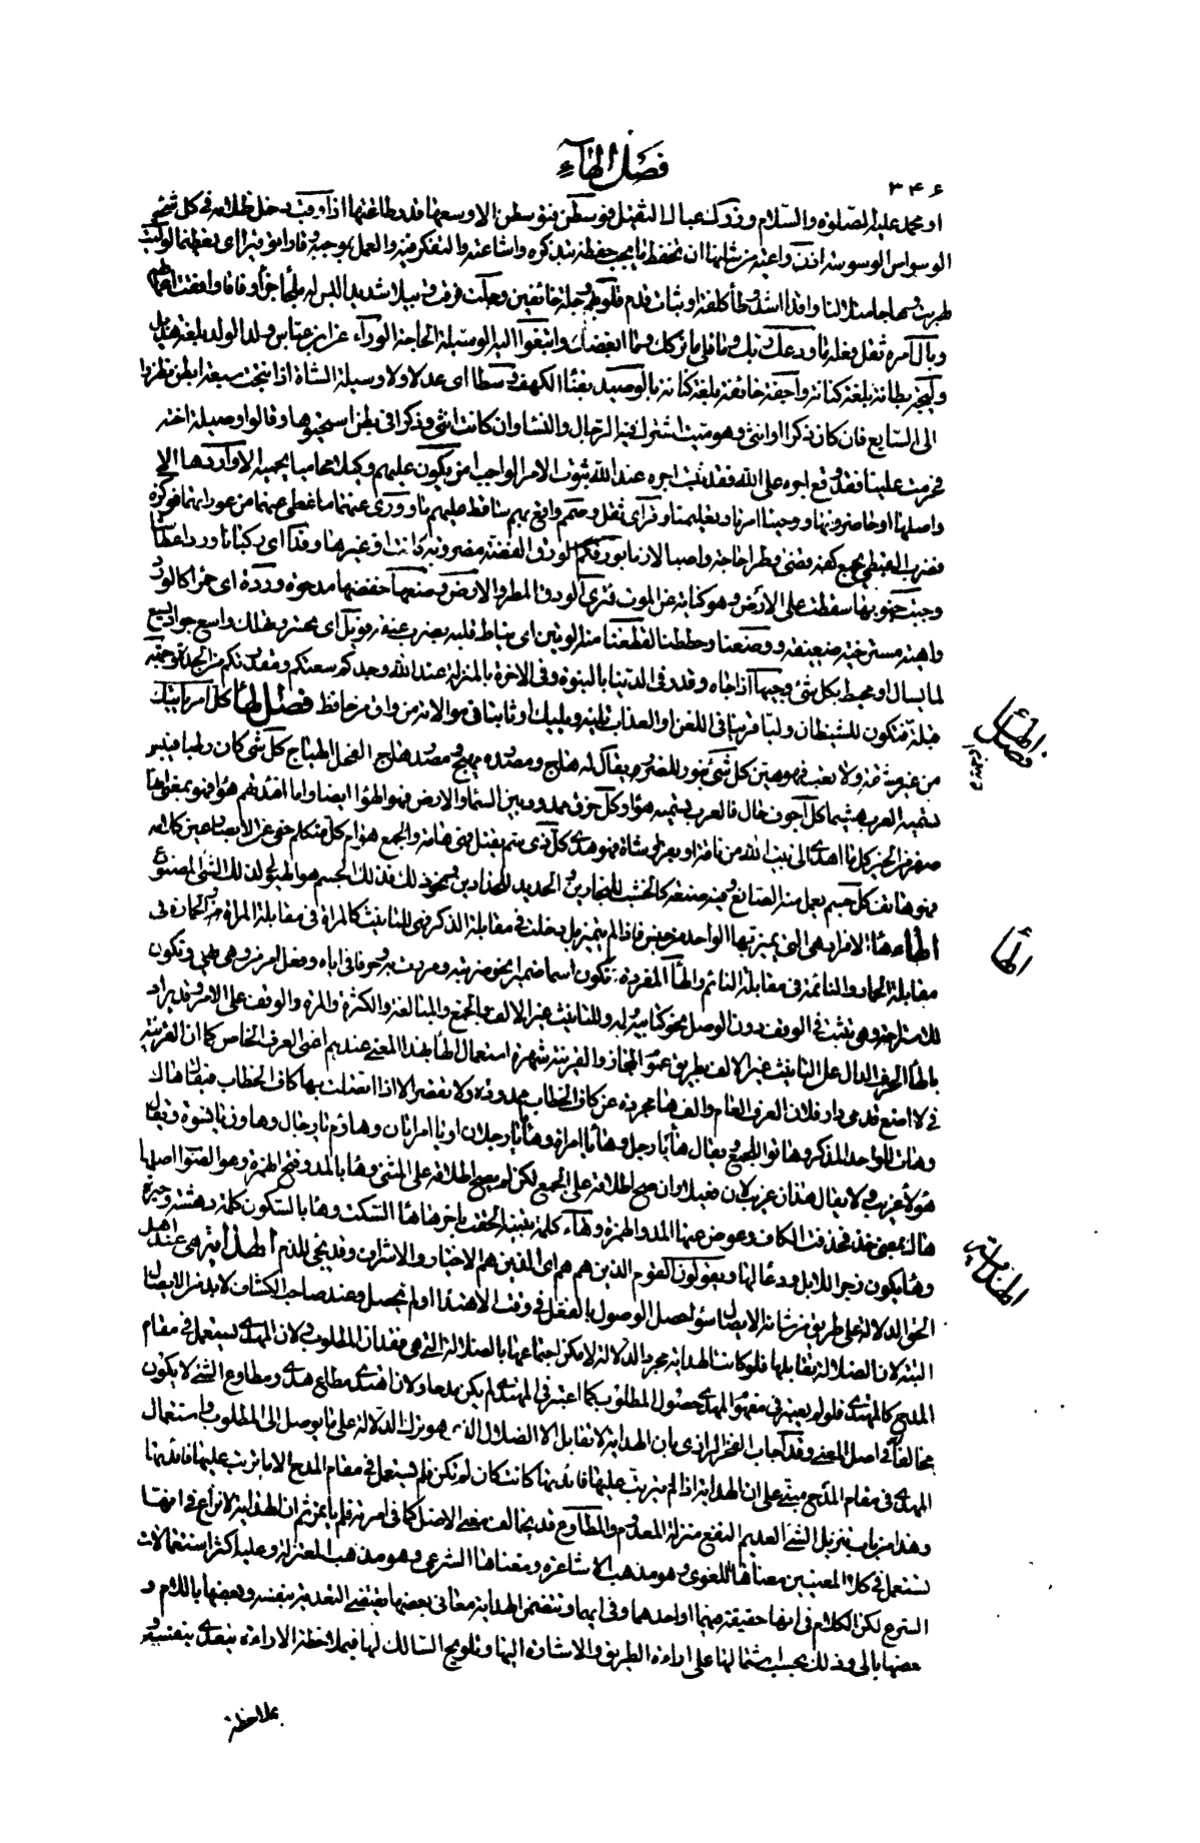 فصل الهاء
٣٤٦
او محمد عليه الصلوة والسلام وزرك عبال الثقيل فوسطن فتوسطن الا وسعها قدر طاقتها اذا وقب دخل ظلامه في كل شئ
الوسواس الوسوسة اذن واعية من شانها ان تحفظ ما يجب حفظه بتذكره واشاعته والتفكر فيه والعمل بموجبه
طريق اشد وطأ كلفة او ثبات قدم قلوبهم وجلة خائفين وجلت فرقت وبيلا شديدا ليس له ملجأ جزاء وفاقا وافقت اعمالهم
وبال امره ثقل فعله ما ودعك ربك وما قلى ما تركك وما ابغضك وابتغوا اليه الوسيلة الحاجة الوراء عن ابن عباس ولد الولد بلغة هذيل
وليجة بطانة بلغة كنانة واجفة خائفة بلغة كنانة بالوصيد بفناء الكهف وسطا اى عدلا ولا وسيلة الشاة اذا انتجت سبعة ابطن نظروا
الى السابع فان كان ذكرا او انثى وهو ميت اشترك فيه الرجال والنساء وان كانت انثى وذكرا في بطن استحيوها وقالوا وصيلة اخته
فحرمت علينا فقد وقع اجره على الله فقد ثبت اجره عند الله ثبوت الامر الواجب من يكون عليهم وكيلا محاميا يحميهم الا واردها الا
واصلها او حاضر دونها ووحينا امرنا وتعليمنا وقرأى ثقل وصمم واقع بهم ساقط عليهم ما وورى عنهما ما غطى عنهما من عوراتهما فوكزه
فضرب القبطى بجمع كفه وقضى وطرا حاجة واصبا لازما بورقكم الورق الفضة مضروبة كانت او غيرها وفدا اى ركبانا وردا عطاشا
وجبت جنوبها سقطت على الارض وهو كناية عن الموت فترى الودق المطر والارض وضعها خفضها مدحوة وردة اى حمراء كالورد
واهية مسترخية ضعيفة ووضعنا وحططنا لقطعنا منه الوتين اى نياط قلبه بضرب عنقه فويل اى تحسر وهلك واسع جواد يسع
لما يسال او محيط بكل شئ وجيها ذا جاه وقدر في الدنيا بالنبوة وفي الاخرة بالمنزلة عند الله وجدكم سعتكم ومقدرتكم
فتكون للشيطان وليا قرينا في اللعن او العذاب تليه ويليك او ثابتا في موالاته من واق من حافظ فصل الهاء كل امر ياتيك
من غير مشقة ولا تعب فهو هين كل شئ يثور للضرر يقال له هاج ومصدره هيج ومصدر هاج الفحل الهياج كل شئ كان رطبا فيبس
تسميه العرب هشيما كل اجوف خال فالعرب يسميه هواء وكل جوف ممدود بين السماء والارض فهو الهواء ايضا واما افئدتهم هواء فهو بمعنى انها
صفر من الخير كل ما اهدى الى بيت الله من ناقة او بقرة او شاة فهو هدى كل ذى سم يقتل فهى هامة والجمع هوام كل متكلم خفى عن الابصار عين كلامه
فهو هاتف كل جسم يعمل منه الصانع وفيه صنعه كالخشب للنجارين والحديد للحدادين ونحو ذلك فذلك الجسم هو الهيولى لذلك الشئ المصنوع
الهاء هاء الافراد هى التى يميز بها الواحد من جنس فاذا لم يتميز بل دخلت في مقابلة الذكر فهى للتانيث كالمرأة في مقابلة المرء والحمارة في
مقابلة الحمار والنائمة في مقابلة النائم والهاء المفردة تكون اسما ضميرا نحو ضربته ومررت به وحرفا في اياه وفعل امر من وهى يهى وتكون
للاستراحة وهى تثبت في الوقف دون الوصل نحو كتابيه وللتانيث غير الالف والجمع والمبالغة والكثرة والمرة والوقف على الامر وقد يراد
بالهاء الحرف الدال على التانيث غير الالف بطريق عموم المجاز والقرينة شهرة استعمال الهاء بهذا المعنى عندهم اعنى العرف الخاص كما ان القرينة
في لا اضع قدمى دار فلان العرف العام والف ها مجردة عن كاف الخطاب ممدودة ولا تقصر الا اذا اتصلت بها كاف الخطاب فيقال هاك
وهات للواحد المذكر وهاتوا للجمع ويقال هاء يا رجل وهاء يا امرأة وهاؤما يا رجلان او يا امرأتان وهاؤم يا رجال وهاؤن يا نسوة ويقال
هؤلاء غريب ولا يقال هذان غريبان فعيل وان صح اطلاقه على الجمع لكن لم يصح اطلاقه على المثنى وهاء بالمد وفتح الهمزة وهو الصواب اصلها
هاك بمعنى خذ فحذفت الكاف وعوض عنها المد والهمزة وهاء كلمة تنبيه الحقت باخرها هاء السكت وها بالسكون كلمة دهشة وحيرة
وها يكون زجرا للابل ودعاء لها ويقولون القوم الذين هم هم اى الذين هم الاخيار والاشراف وقد يجئ للذم الهداية هى عند اهل
الحق الدلالة على طريق من شانه الايصال سواء حصل الوصول بالفعل في وقت الاهتداء او لم يحصل وعند صاحب الكشاف لا بد من الايصال
البتة لان الضلالة تقابلها فلو كانت الهداية مجرد الدلالة لامكن اجتماعها بالضلالة التى هى فقدان المطلوب ولان المهدى يستعمل في مقام
المدح كالمهتدى فلو لم يعتبر في مفهوم المهدى حصول المطلوب كما اعتبر في المهتدى لم يكن مدحا ولان اهتدى مطاوع هدى ومطاوع الشئ لا يكون
مخالفا في اصل المعنى وقد اجاب الفخر الرازى بان الهداية لا تقابل الا الضلال الذى هو ترك الدلالة على ما يوصل الى المطلوب واستعمال
المهدى في مقام المدح مبنى على ان الهداية اذا لم يترتب عليها فائدتها كانت كان لم تكن فلم يستعمل في مقام المدح الا ما ترتب عليها فائدتها
وهذا من باب تنزيل الشئ العديم النفع منزلة المعدوم والمطاوع قد يخالف معنى الاصل كما في امرته فلم ياتمر ثم ان الهداية لا نزاع في انها
تستعمل في كلا المعنيين معناها اللغوى وهو مذهب الاشاعرة ومعناها الشرعى وهو مذهب المعتزلة وعليه اكثر استعمالات
الشرع لكن الكلام في انها حقيقة فيهما او احدهما وفي ايهما وتتضمن الهداية معانى بعضها يقتضى التعدية بنفسه وبعضها باللام و
بعضها بالى وذلك بحسب اشتمالها على اراءة الطريق والاشارة اليها وتلويح السالك لها فبملاحظة الاراءة يتعدى بنفسه و
بملاحظة
فصل الهاء
الهاء
الهداية